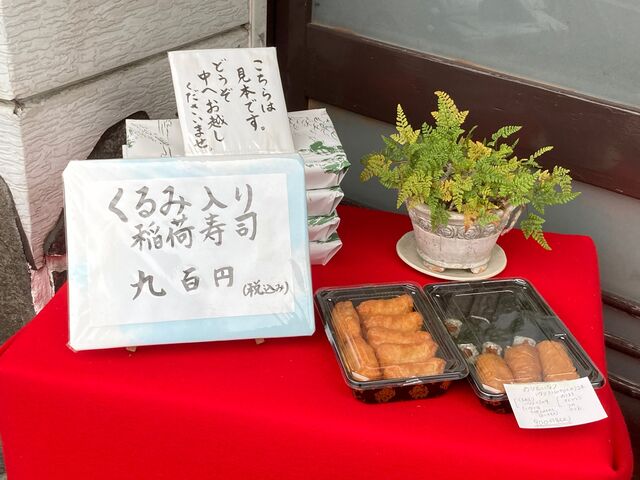 こちらは
見本です。
どうぞ
中へお越し
くださいませ。
くるみ入り
稲荷寿司
九百円
(税込み)